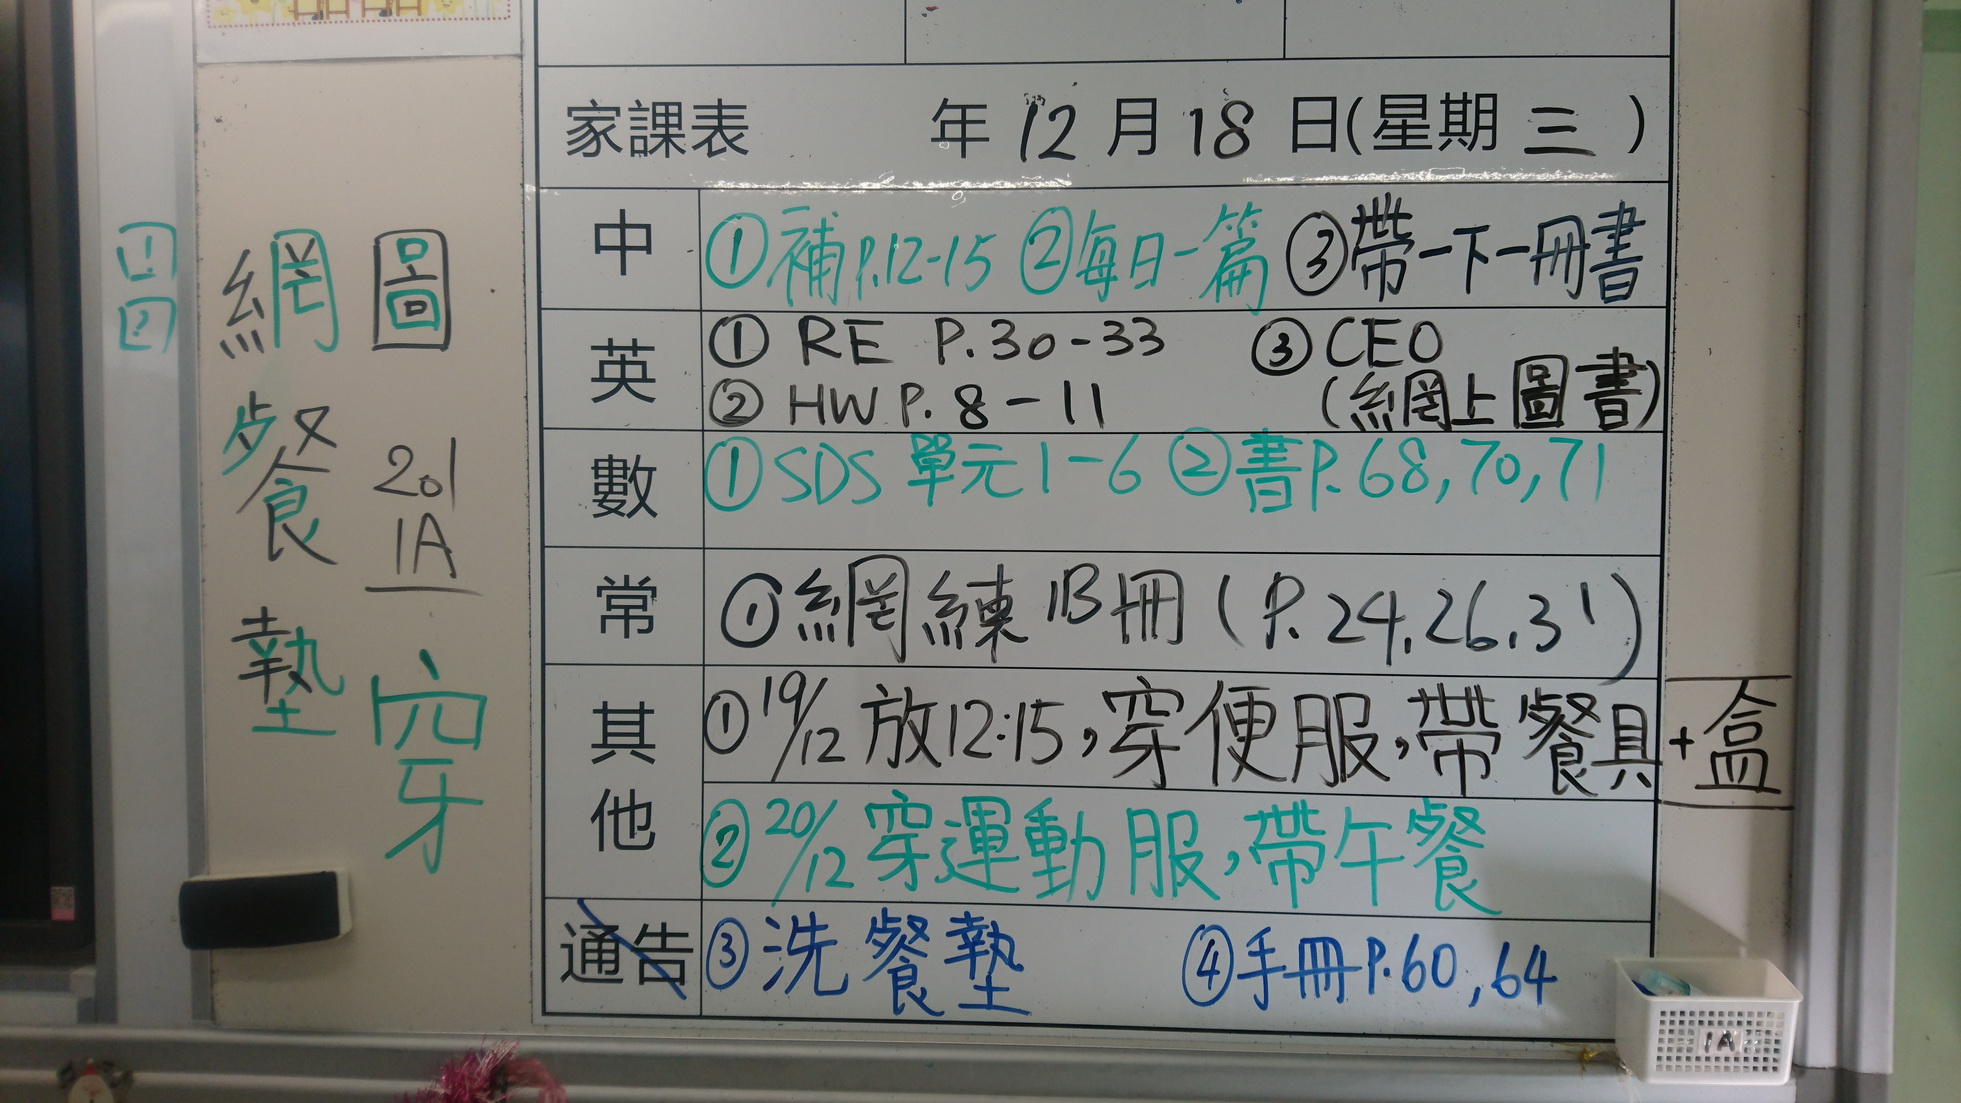 家課表 年 12 月 18 日(星期 三 )
中 ①補P.12-15 ②每日一篇 ③帶一下一冊書
英 ① RE P.30-33 ③ CEO
② HW P. 8-11 (網上圖書)
數 ① SDS 單元1-6 ②書P.68,70,71
常 ①網練1B冊(P.24,26,31)
其他 ①19/12放12:15,穿便服,帶餐具+盒
②20/12穿運動服,帶午餐
通告 ③洗餐墊 ④手冊P.60,64
網
餐
墊
圖
201
1A
穿
1A